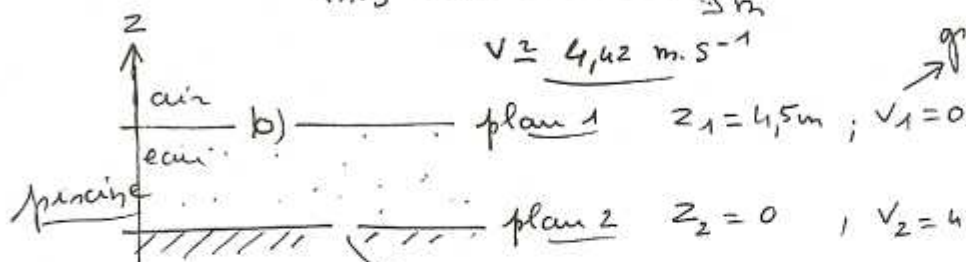 z
V ≃ 4,42 m.s⁻¹
air b) plan 1 z₁ = 4,5m ; V₁ = 0
eau
piscine
plan 2 z₂ = 0 , V₂ = 4